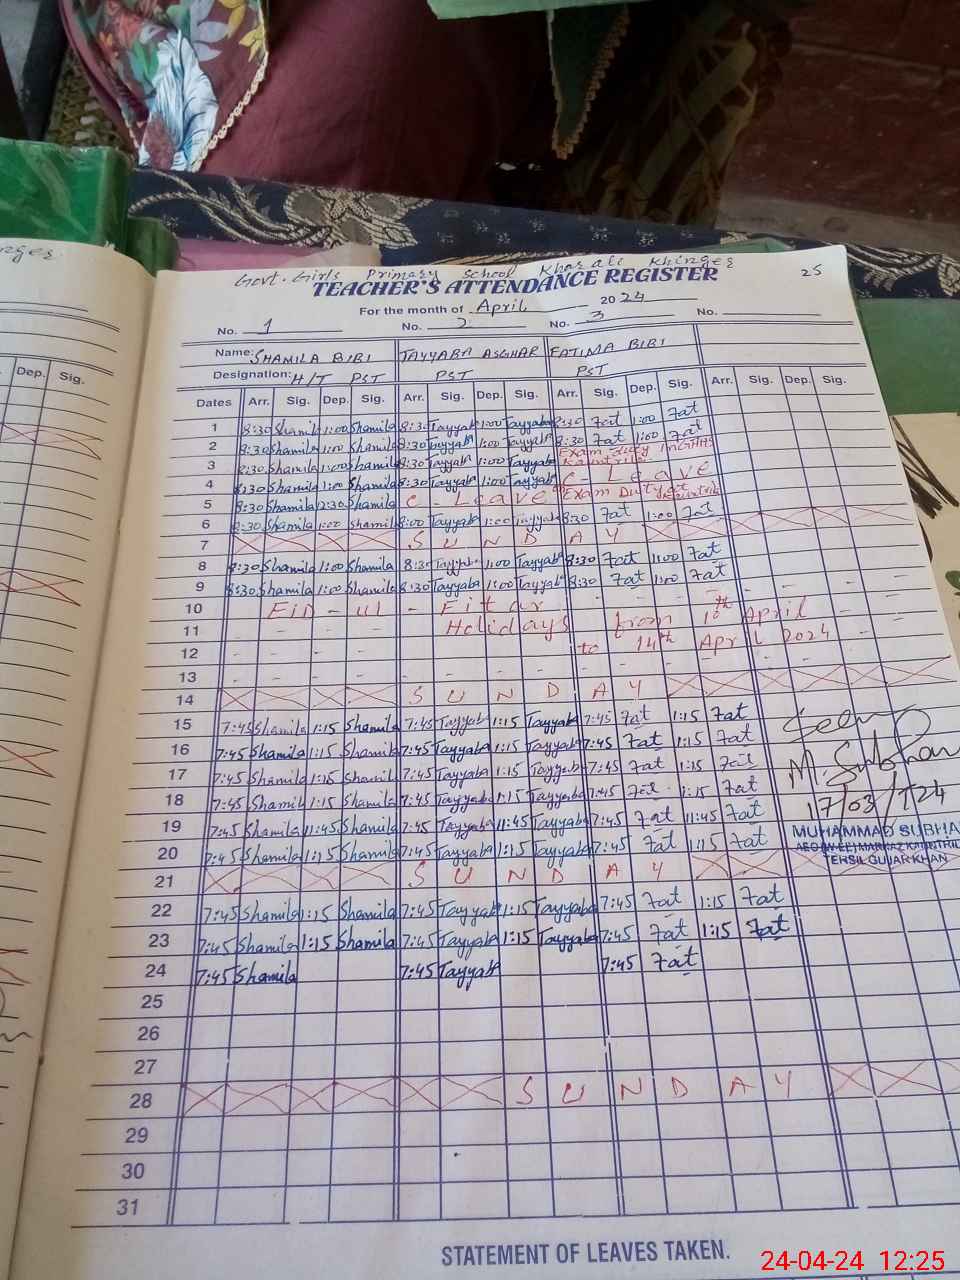 Govt. Girls Primary School Kharali Khinger
25
TEACHER'S ATTENDANCE REGISTER
For the month of April 2024
No. 1 No. 2 No. 3 No.
Name: SHAMILA BIBI TAYYABA ASGHAR FATIMA BIBI
Designation: H/T PST PST PST
Dep. Sig.
Dates Arr. Sig. Dep. Sig. Arr. Sig. Dep. Sig. Arr. Sig. Dep. Sig. Arr. Sig. Dep. Sig.
1 8:30 Shamila 1:00 Shamila 8:30 Tayyab 1:00 Tayyaba 8:30 Fat 1:00 Fat
2 8:30 Shamila 1:00 Shamila 8:30 Tayyab 1:00 Tayyab 8:30 Fat 1:00 Fat
3 8:30 Shamila 1:00 Shamila 8:30 Tayyab 1:00 Tayyab Exam duty
4 8:30 Shamila 1:00 Shamila 8:30 Tayyab 1:00 Tayyab C - Leave
5 8:30 Shamila 12:30 Shamila C Leave Exam Duty at
6 8:30 Shamila 1:00 Shamil 8:00 Tayyab 1:00 Tayyab 8:30 Fat 1:00 Fat
7 SUNDAY
8 8:30 Shamila 1:00 Shamila 8:30 Tayyab 1:00 Tayyab 8:30 Fat 1:00 Fat
9 8:30 Shamila 1:00 Shamila 8:30 Tayyaba 1:00 Tayyab 8:30 Fat 1:00 Fat
10 EID - ul - Fitar
11 Holidays from 10th April
12 to 14th April 2024
13
14 SUNDAY
15 7:45 Shamila 1:15 Shamila 7:45 Tayyab 1:15 Tayyab 7:45 Fat 1:15 Fat
16 7:45 Shamila 1:15 Shamila 7:45 Tayyab 1:15 Tayyab 7:45 Fat 1:15 Fat
17 7:45 Shamila 1:15 Shamila 7:45 Tayyaba 1:15 Tayyab 7:45 Fat 1:15 Fat
18 7:45 Shamil 1:15 Shamila 7:45 Tayyaba 1:15 Tayyaba 7:45 Fat 1:15 Fat
19 7:45 Shamila 11:45 Shamila 7:45 Tayyaba 11:45 Tayyaba 7:45 Fat 11:45 Fat
20 7:45 Shamila 1:15 Shamila 7:45 Tayyaba 1:15 Tayyaba 7:45 Fat 1:15 Fat
21 SUNDAY
22 7:45 Shamila 1:15 Shamila 7:45 Tayyab 1:15 Tayyaba 7:45 Fat 1:15 Fat
23 7:45 Shamila 1:15 Shamila 7:45 Tayyab 1:15 Tayyaba 7:45 Fat 1:15 Fat
24 7:45 Shamila 7:45 Tayyab 7:45 Fat
25
26
27
28 SUNDAY
29
30
31
Seen
M. Subhan
17/03/
MUHAMMAD SUBHA
TEHSIL GUJAR KHAN
STATEMENT OF LEAVES TAKEN.
24-04-24 12:25